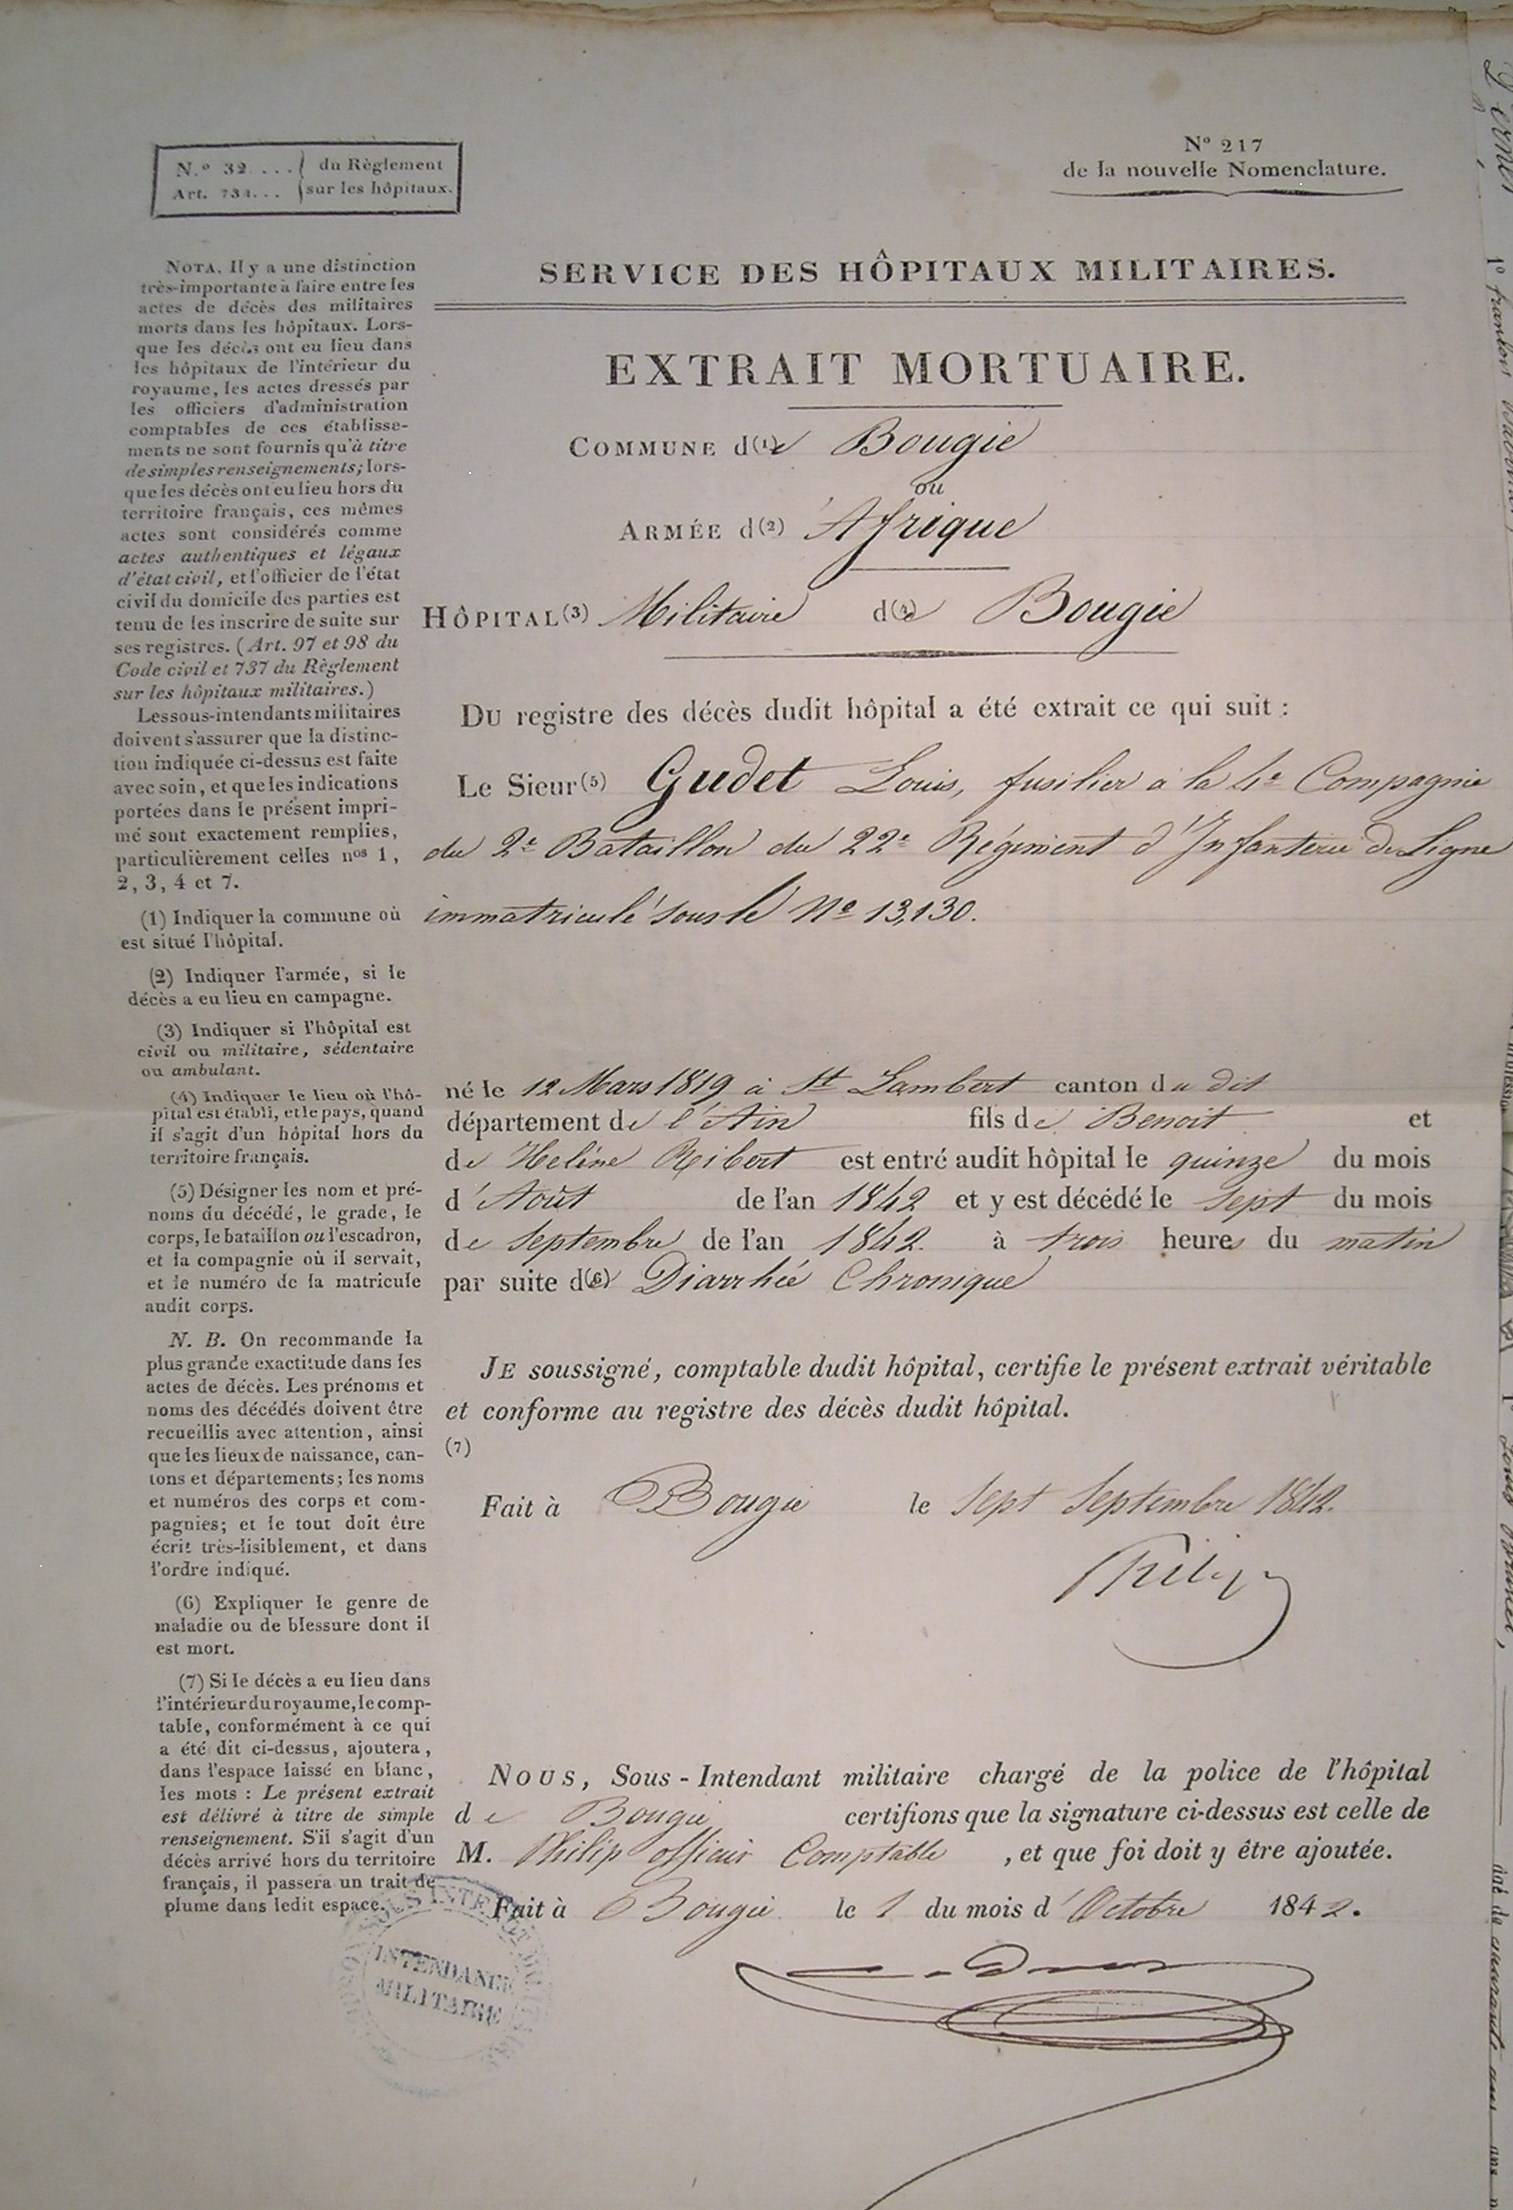 N.º 32 . . . du Règlement
Art. 734. . . sur les hôpitaux.
Nº 217
de la nouvelle Nomenclature.
SERVICE DES HÔPITAUX MILITAIRES.
EXTRAIT MORTUAIRE.
COMMUNE d(1)e Bougie
ou
ARMÉE d(2)'Afrique
HÔPITAL(3) Militaire d(4)e Bougie
DU registre des décès dudit hôpital a été extrait ce qui suit :
Le Sieur(5) Gudet Louis, fusilier à la 4e Compagnie
du 2e Bataillon du 22e Régiment d'Infanterie de Ligne
immatriculé sous le Nº 13,130.
né le 12 Mars 1819 à St Lambert canton du dit
département de l'Ain fils de Benoit et
de Heléne Ribert est entré audit hôpital le quinze du mois
d'Août de l'an 1842 et y est décédé le sept du mois
de Septembre de l'an 1842. à trois heures du matin
par suite d(6)e Diarrhée Chronique
JE soussigné, comptable dudit hôpital, certifie le présent extrait véritable
et conforme au registre des décès dudit hôpital.
(7)
Fait à Bougie le sept Septembre 1842.
Philip
NOUS, Sous-Intendant militaire chargé de la police de l'hôpital
de Bougie certifions que la signature ci-dessus est celle de
M. Philip officier Comptable , et que foi doit y être ajoutée.
Fait à Bougie le 1 du mois d'Octobre 1842.
INTENDANCE
MILITAIRE
NOTA. Il y a une distinction
très-importante à faire entre les
actes de décès des militaires
morts dans les hôpitaux. Lors-
que les décès ont eu lieu dans
les hôpitaux de l'intérieur du
royaume, les actes dressés par
les officiers d'administration
comptables de ces établisse-
ments ne sont fournis qu'à titre
de simples renseignements; lors-
que les décès ont eu lieu hors du
territoire français, ces mêmes
actes sont considérés comme
actes authentiques et légaux
d'état civil, et l'officier de l'état
civil du domicile des parties est
tenu de les inscrire de suite sur
ses registres. (Art. 97 et 98 du
Code civil et 737 du Règlement
sur les hôpitaux militaires.)
Les sous-intendants militaires
doivent s'assurer que la distinc-
tion indiquée ci-dessus est faite
avec soin, et que les indications
portées dans le présent impri-
mé sont exactement remplies,
particulièrement celles nos 1,
2, 3, 4 et 7.
(1) Indiquer la commune où
est situé l'hôpital.
(2) Indiquer l'armée, si le
décès a eu lieu en campagne.
(3) Indiquer si l'hôpital est
civil ou militaire, sédentaire
ou ambulant.
(4) Indiquer le lieu où l'hô-
pital est établi, et le pays, quand
il s'agit d'un hôpital hors du
territoire français.
(5) Désigner les nom et pré-
noms du décédé, le grade, le
corps, le bataillon ou l'escadron,
et la compagnie où il servait,
et le numéro de la matricule
audit corps.
N. B. On recommande la
plus grande exactitude dans les
actes de décès. Les prénoms et
noms des décédés doivent être
recueillis avec attention, ainsi
que les lieux de naissance, can-
tons et départements; les noms
et numéros des corps et com-
pagnies; et le tout doit être
écrit très-lisiblement, et dans
l'ordre indiqué.
(6) Expliquer le genre de
maladie ou de blessure dont il
est mort.
(7) Si le décès a eu lieu dans
l'intérieur du royaume, le comp-
table, conformément à ce qui
a été dit ci-dessus, ajoutera,
dans l'espace laissé en blanc,
les mots : Le présent extrait
est délivré à titre de simple
renseignement. S'il s'agit d'un
décès arrivé hors du territoire
français, il passera un trait de
plume dans ledit espace.